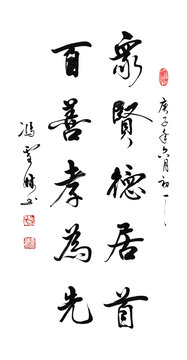 庚子年六月初一
眾賢德居首
百善孝為先
馮雪林书